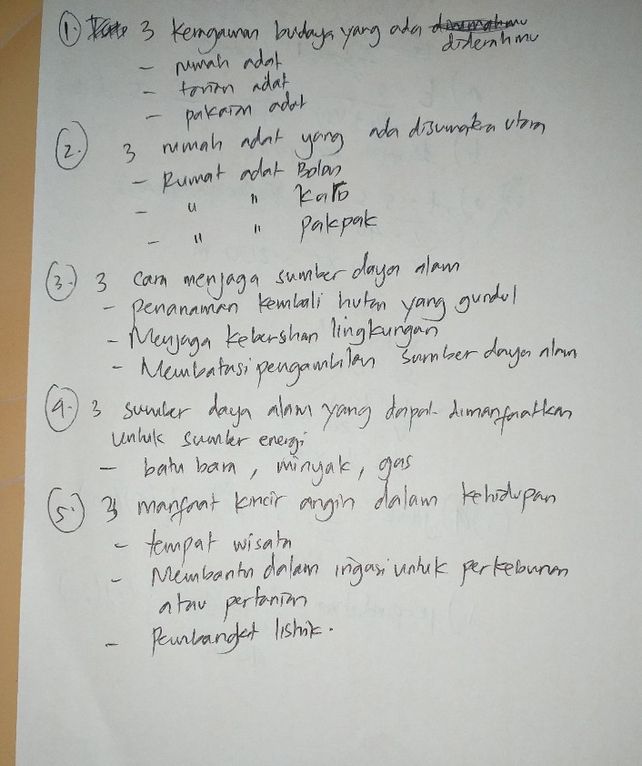 1. 3 keragaman budaya yang ada
didaerahmu
- rumah adat
- tarian adat
- pakaian adat
2. 3 rumah adat yang ada disumatera utara
- Rumat adat Bolon
- " " Karo
- " " pakpak
3. 3 cara menjaga sumber daya alam
- penanaman kembali hutan yang gundul
- Menjaga kebershan lingkungan
- Membatasi pengambilan sumber daya alam
4. 3 sumber daya alam yang dapat dimanfaatkan
untuk sumber energi
- batu bara, minyak, gas
5. 3 manfaat kincir angin dalam kehidupan
- tempat wisata
- Membantu dalam irigasi untuk perkebunan
atau pertanian
- Pembangkit listrik.